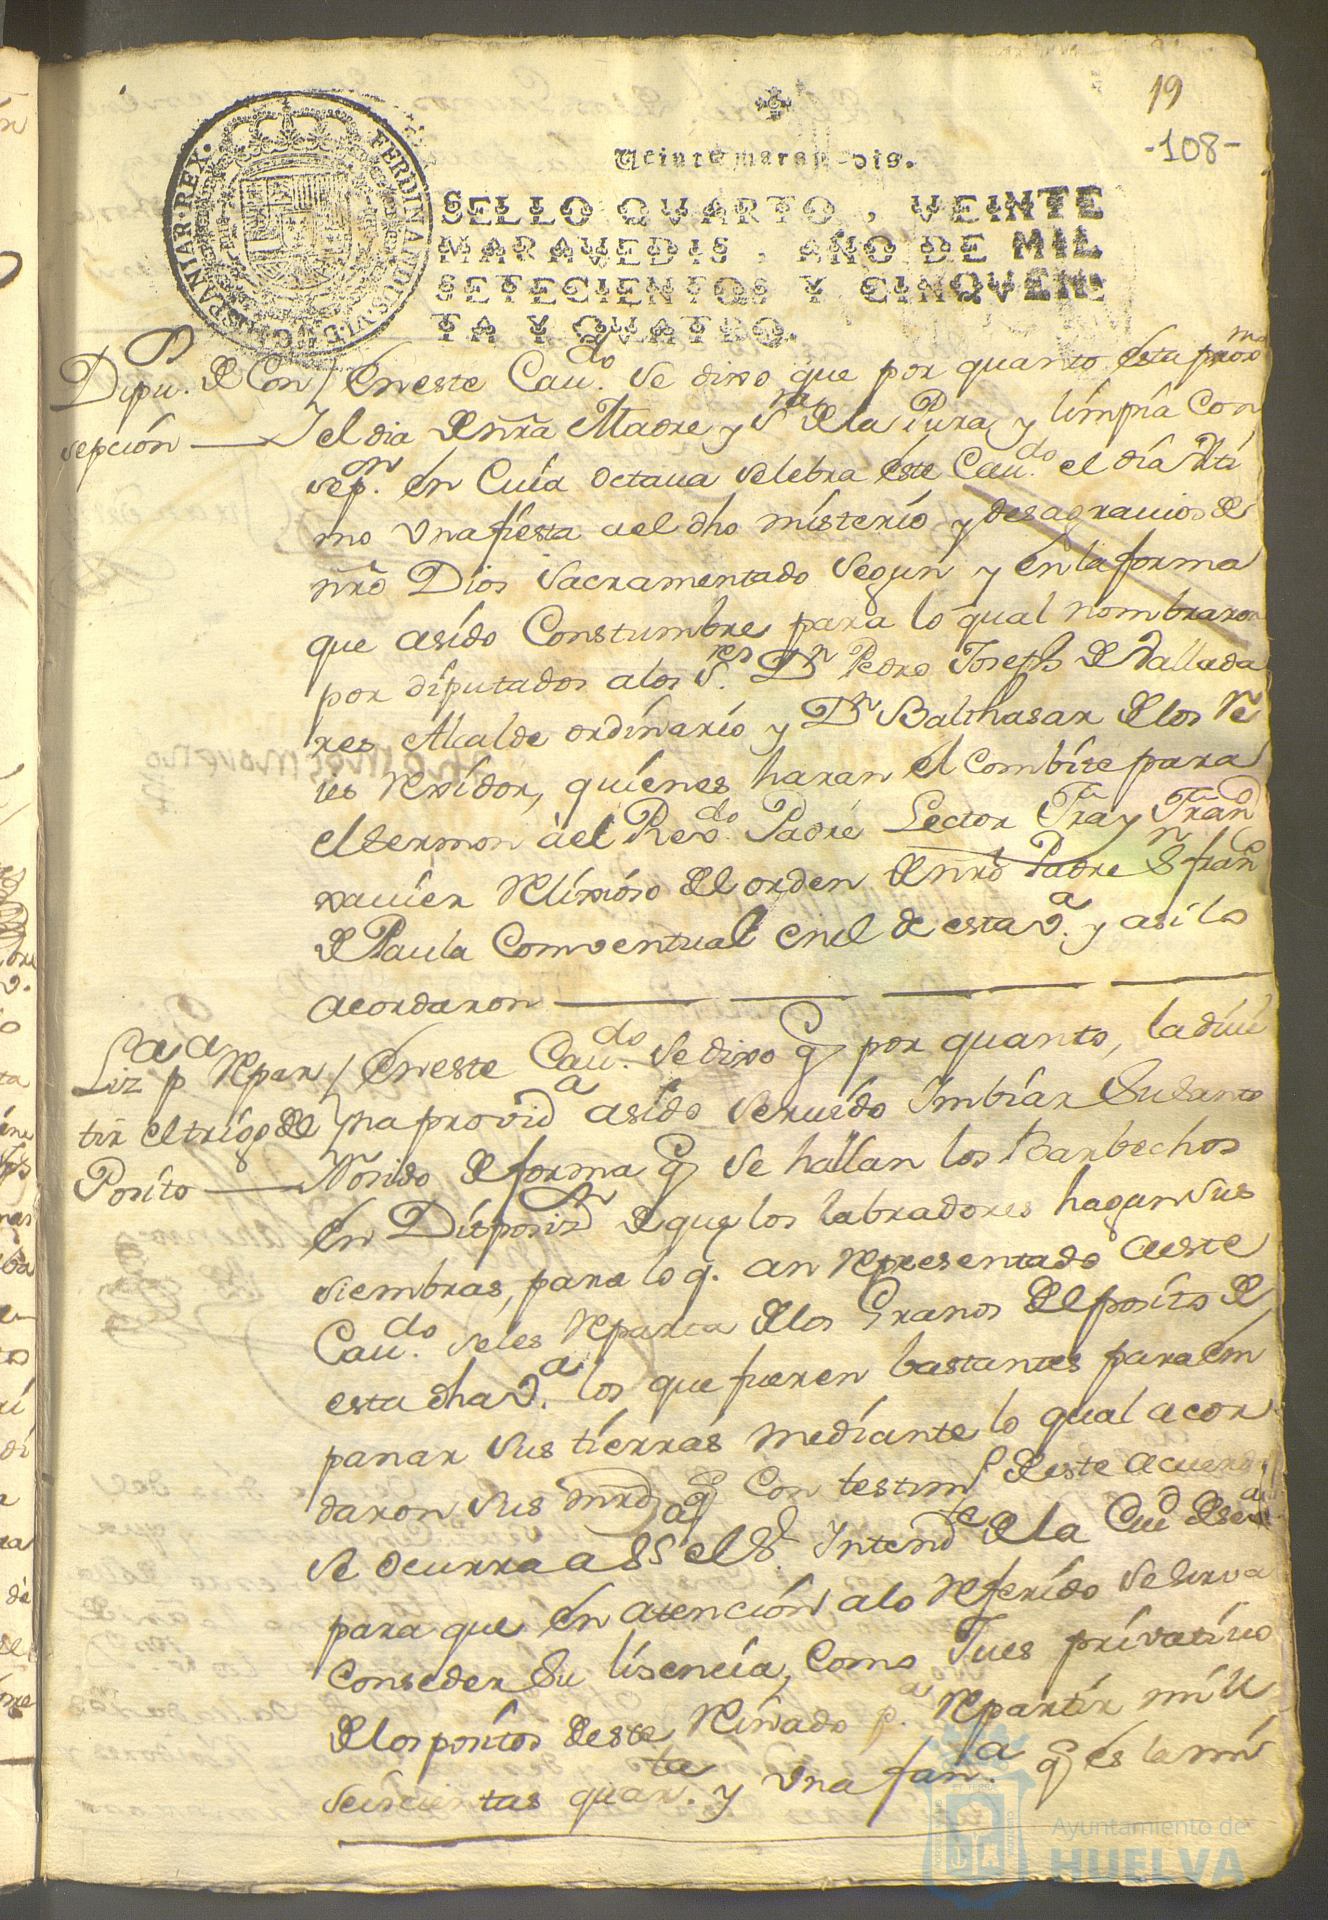 19
-108-
Veinte maravedis.
SELLO QVARTO, VEINTE
MARAVEDIS, AÑO DE MIL
SETECIENTOS Y CINQVEN
TA Y QVATRO.
FERDINANDUS·VI·D·G·HISPANIAR·REX·
Dipu.ᵒⁿ de Con
sepción
En este Cau.ᵈᵒ se dixo que por quanto esta proxᵐᵒ
el dia de nr̃a Madre y S.ʳᵃ de la Pura y limpia Con
sepᵒⁿ. en Cuia octaua selebra este Cau.ᵈᵒ el día Ulti
mo Una fiesta ael dho misterio y desagrauios de
nr̃o Dios Sacramentado Segun y en la forma
que asido Constumbre para lo qual nombraron
por diputados alos S.ʳᵉˢ Dⁿ Pedro Joseph de Vallada
res Alcalde ordinario y Dⁿ Balthasar de los Re
ies Rexidor, quienes haran el combite para
el sermon ael Rev.ᵈᵒ Padre Lector Fray Fran.ᶜᵒ
xauier Relixioso del orden de nr̃o Padre Sⁿ franᶜᵒ
de Paula Comventual en el de esta v.ᵃ y asi lo
acordaron
Lizᵃ pᵃ Repar
tir el trigo del
Posito
En este Cau.ᵈᵒ se dixo q̃ por quanto, la diui
na providᵃ asido seruido Imbiar Su Santo
Rosido de forma q̃ se hallan los Barbechos
en Disposizᵒⁿ de que los labradores hagan sus
siembras, para lo q. an Representado a este
Cau.ᵈᵒ se les Reparta de los Granos del posito de
esta dha v.ᵃ los que fueren bastantes para em
panar sus tierras mediante lo qual acor
daron sus mrᵈˢ q̃ Con testimᵒ de este acuerdo
se ocurra a SS el Sʳ. Intendᵗᵉ de la Ciudᵈ de Seuᵃ
para que en atención a lo Referido se sirva
Conseder Su lisencia, Como Jues privatiuo
de los positos de este Reinado p.ᵃ Repartir mill
seiscientas quar.ᵗᵃ y Una fan.ᵃ q̃ es la mi
Ayuntamiento de
HUELVA